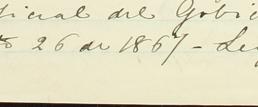 ficial del Gobie
to 26 de 1867 - Le